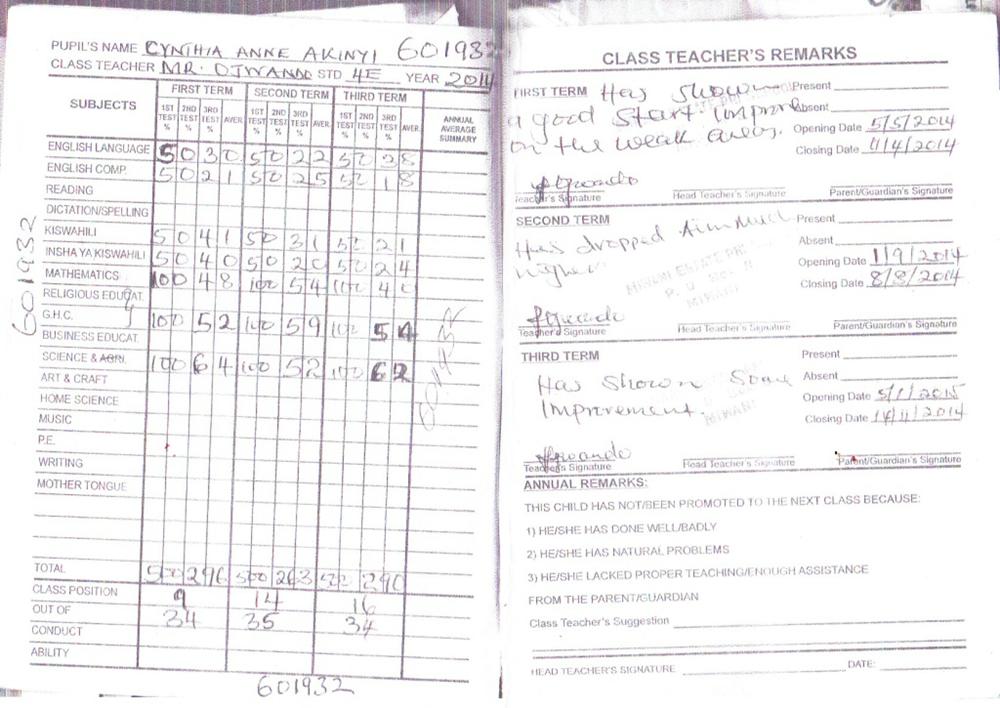 PUPIL'S NAME CYNTHIA ANNE AKINYI 601932
CLASS TEACHER MR. OJWANDO STD 4E YEAR 2014
SUBJECTS FIRST TERM SECOND TERM THIRD TERM ANNUAL AVERAGE SUMMARY
1ST TEST % 2ND TEST % 3RD TEST % AVER. 1ST TEST % 2ND TEST % 3RD TEST % AVER. 1ST TEST % 2ND TEST % 3RD TEST % AVER.
ENGLISH LANGUAGE 50 30 50 22 50 28
ENGLISH COMP. 50 21 50 25 50 18
READING
DICTATION/SPELLING
KISWAHILI 50 41 50 31 50 21
INSHA YA KISWAHILI 50 40 50 20 50 24
MATHEMATICS 100 48 100 54 100 40
RELIGIOUS EDUCAT.
G.H.C. 100 52 100 59 100 54
BUSINESS EDUCAT.
SCIENCE & AGRI. 100 64 100 52 100 62
ART & CRAFT
HOME SCIENCE
MUSIC
P.E.
WRITING
MOTHER TONGUE
TOTAL 500 296 500 263 290
CLASS POSITION 9 14 16
OUT OF 34 35 34
CONDUCT
ABILITY
601932
601932
601932
CLASS TEACHER'S REMARKS
FIRST TERM Has shown Present
a good start. Improve Absent
on the weak areas. Opening Date 5/5/2014
Closing Date 11/4/2014
Teacher's Signature Head Teacher's Signature Parent/Guardian's Signature
SECOND TERM Present
Has dropped Aim Much Absent
higher Opening Date 1/9/2014
Closing Date 8/8/2014
MIWANI ESTATE PRI
P. O. BOX
MIWANI
Teacher's Signature Head Teacher's Signature Parent/Guardian's Signature
THIRD TERM Present
Has shown some Absent
Improvement. Opening Date 5/1/2015
Closing Date 14/11/2014
MIWANI
Teacher's Signature Head Teacher's Signature Parent/Guardian's Signature
ANNUAL REMARKS:
THIS CHILD HAS NOT/BEEN PROMOTED TO THE NEXT CLASS BECAUSE:
1) HE/SHE HAS DONE WELL/BADLY
2) HE/SHE HAS NATURAL PROBLEMS
3) HE/SHE LACKED PROPER TEACHING/ENOUGH ASSISTANCE
FROM THE PARENT/GUARDIAN
Class Teacher's Suggestion
HEAD TEACHER'S SIGNATURE DATE: